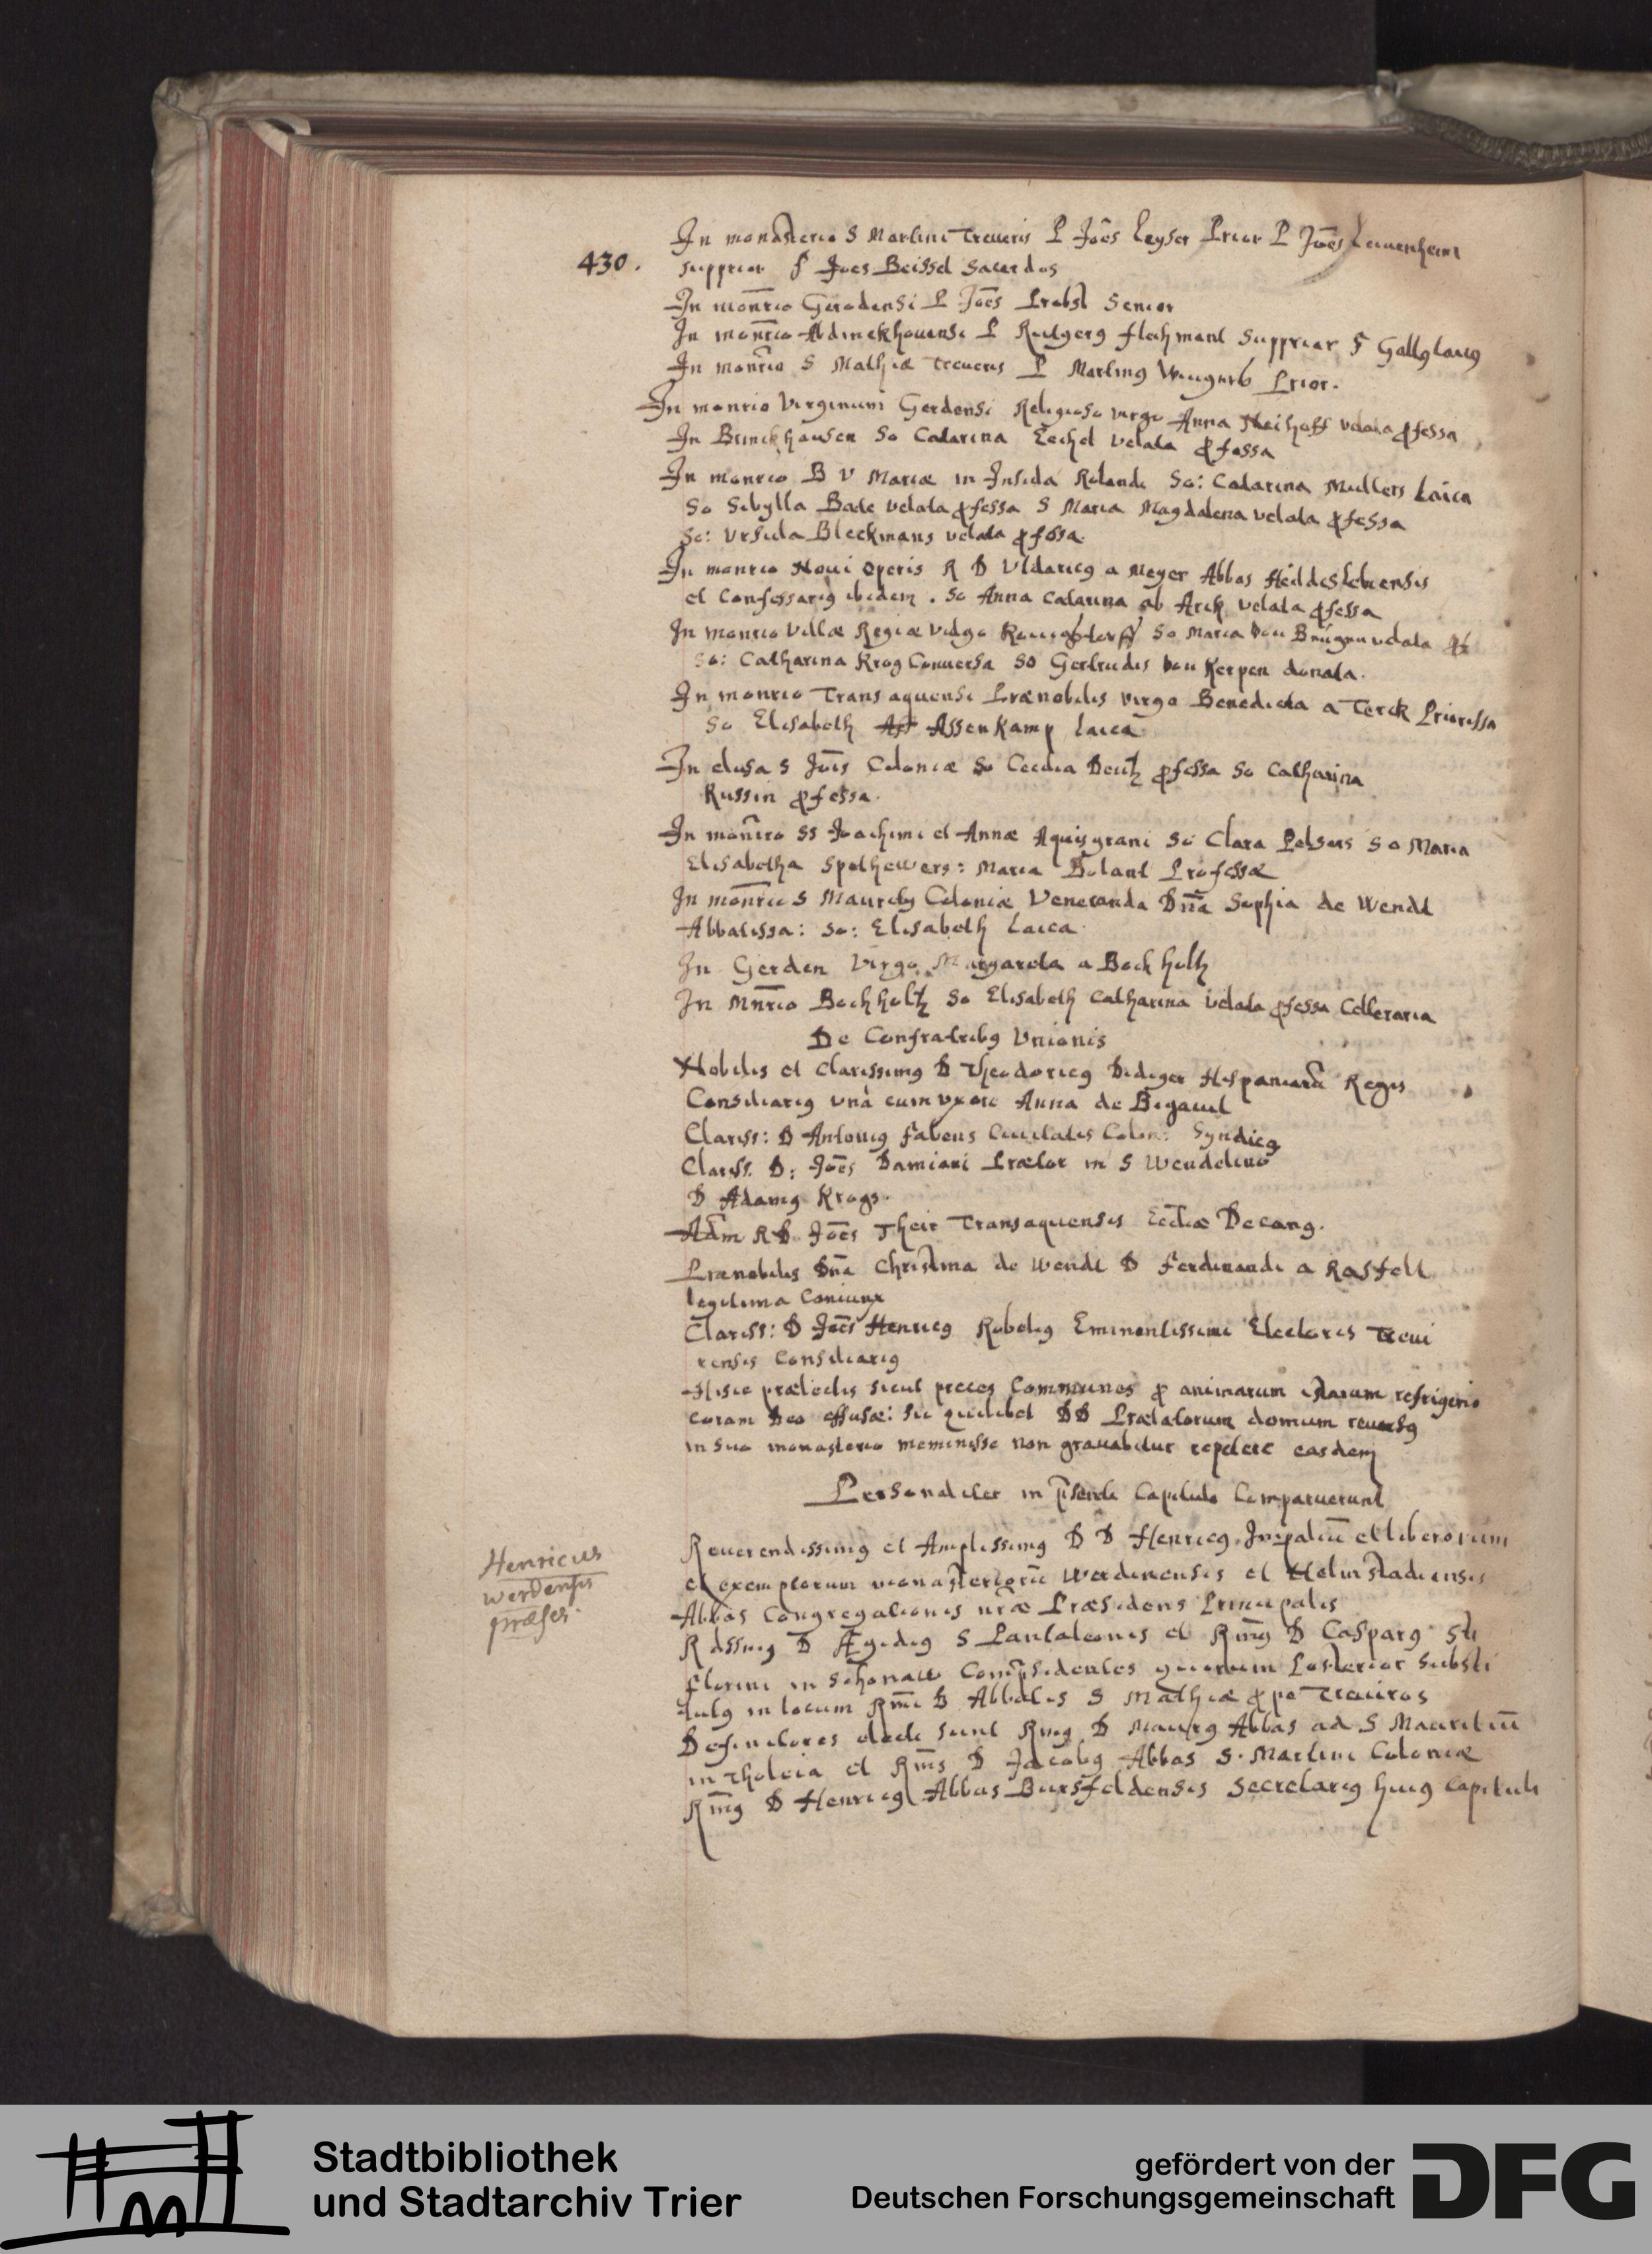 430.
In monasterio S Martini Treueris P Joes Leyser Prior P Joes Leiuenheim
supprior f Joes Beissel Sacerdos
In monrio Gerodensi P Joes Probst Senior
In monrio Abdinckhouensi P Rutgerg flechmant Supprior F Gallg laicg
In monrio S Mathiæ Treueris P Marting Prior.
In monrio Virginum Gerdensi Religiosa virgo Anna Neihoff velata pfessa
In Brinckhausen So Catarina Eechel velata pfessa
In monrio B V Mariæ in Insula Rolandi So: Catarina Mullers Laica
So Sibylla Bate velata pfessa S Maria Magdalena velata pfessa
So: Vrsula Bleckmans velata pfessa.
In monrio Noui Operis R D Vldaricg a Meyer Abbas Heildeslebiensis
et Confessarig ibidem. So Anna Catarina ab Arck velata pfessa
In monrio Villæ Regiæ vulgo Konigsdorff So Maria von velata pf
So: Catharina Krog Conuersa So Gertrudis von Kerpen donata.
In monrio Transaquensi Prænobilis virgo Benedicta a Terck Priorissa
So Elisabeth Ass Assenkamp laica
In clusa S Jois Coloniæ So Cecilia Deutz pfessa So Catharina
Russin pfessa.
In monrio SS Joachimi et Annæ Aquisgrani So Clara Pelsers So Maria
Elisabetha Spelhewers: Maria Bolant Professæ
In monrio S Mauritÿ Coloniæ Veneranda Dna Sophia de Wendt
Abbatissa: So: Elisabeth Laica.
In Gerden Virgo Margareta a Bockholtz
In Mnrio Bochholtz So Elisabeth Catharina velata pfessa Celleraria
De Confratribg Vnionis
Nobilis et Clarissimg D Theodoricg Bidiger Hispaniarū Regis
Consiliarig unà cum vxore Anna de Bigauil
Clariss: D Antonig fabens Ciuitatis Colon: Syndicg
Clariss. D: Joes Damiani Prætor in S Wendelino
D Adamg Krogs.
Adm R D. Joes Their Transaquensis Ecclæ Decang.
Prænobilis Dna Christina de Wendt D Ferdinandi a Rasfelt
legitima Coniunx
Clariss: D Joes Henricg Robelig Eminentissimi Electoris Treui
rensis Consiliarig
Hisce prælectis sicut preces Communes p animarum istarum refrigerio
coram Deo effusæ: sic quilibet DD Prælatorum domum reuersg
in suo monasterio meminisse non grauabitur repetere easdem
Personaliter in psenti Capitulo Comparuerunt
Henricus
werdensis
præses.
Reuerendissimg et Amplissimg D D Henricg Impaliū et liberorum
et exemptorum monasteriorū Werdinensis et Helmstadiensis
Abbas Congregationis nræ Præsidens Principalis
Rdssimg D Ægidig S Pantaleonis et Rmg D Casparg Sti
florini in Schonaw Compsidentes quorum Posterior Substi
tutg in locum Rmi D Abbatis S Mathiæ ppe Treuiros
Definitores electi sunt Rmg D Maurg Abbas ad S Mauritiū
in Tholeia et Rms D Jacobg Abbas S. Martini Coloniæ
Rmg D Henricg Abbas Bursfeldensis Secretarig huig Capituli
Stadtbibliothek
und Stadtarchiv Trier
gefördert von der
Deutschen Forschungsgemeinschaft
DFG